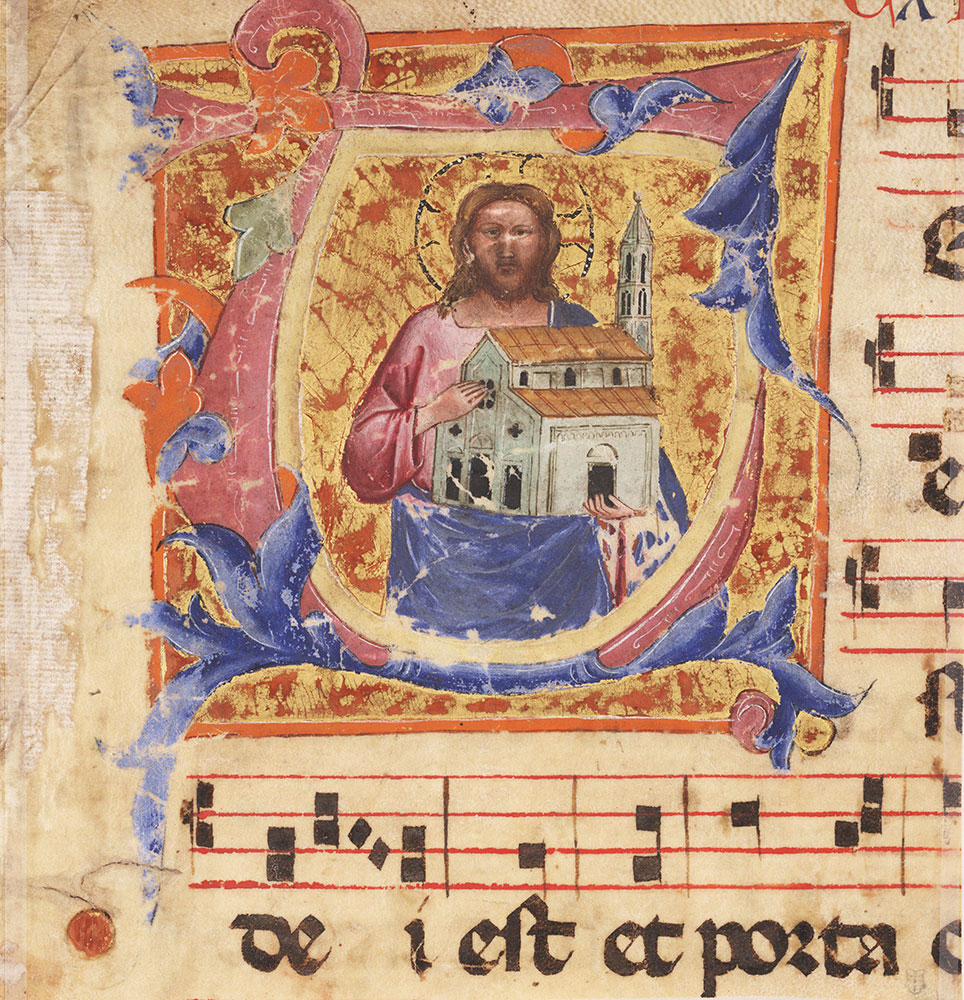 de i est et porta